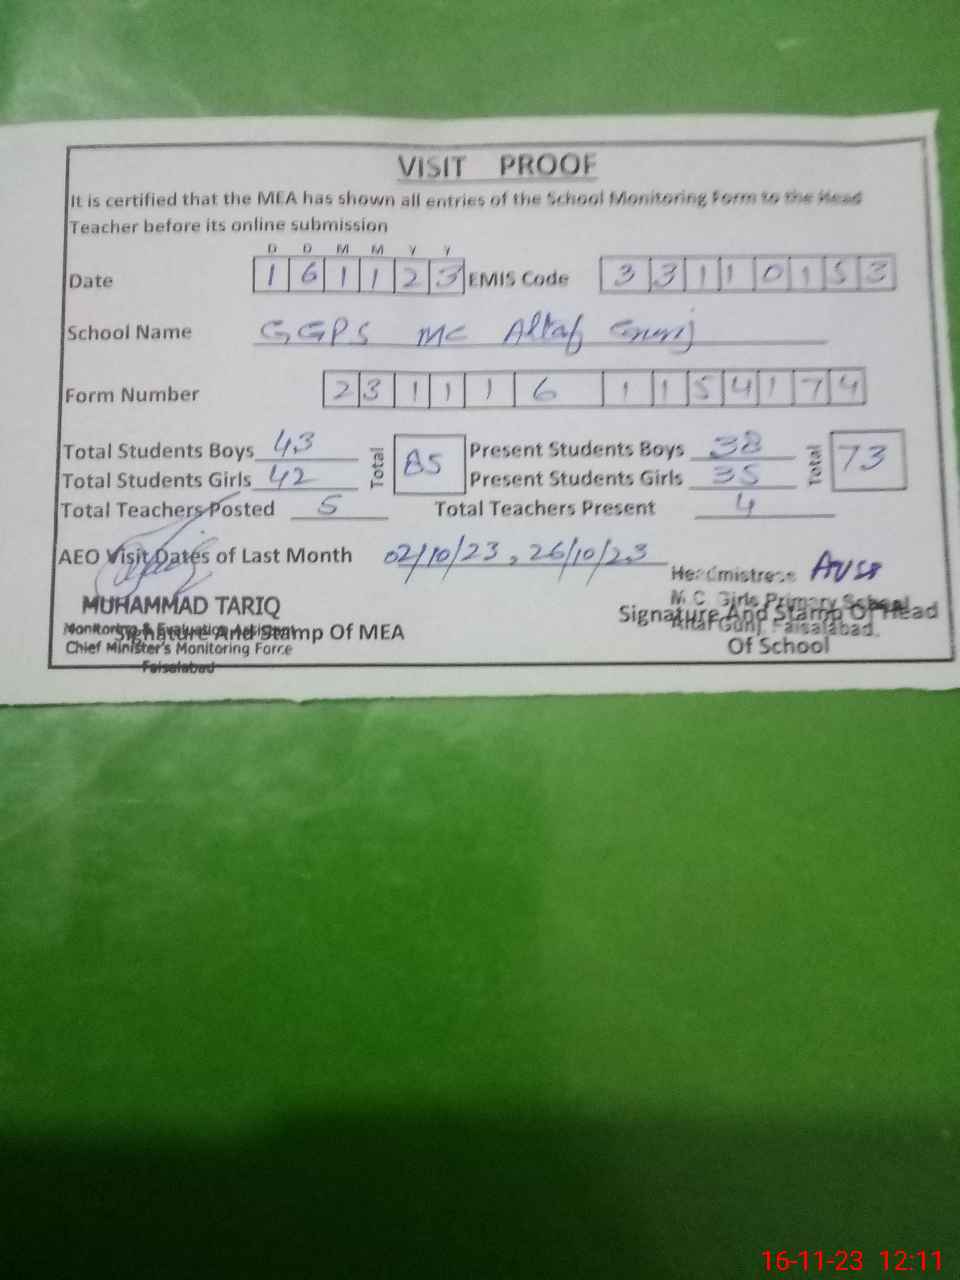 VISIT PROOF
It is certified that the MEA has shown all entries of the School Monitoring Form to the Head
Teacher before its online submission
D D M M Y Y
Date 1 6 1 1 2 3 EMIS Code 3 3 1 1 0 1 5 3
School Name GGPS MC Altaf Gunj
Form Number 2 3 1 1 1 6 1 1 5 4 1 7 4
Total Students Boys 43 Total 85 Present Students Boys 38 Total 73
Total Students Girls 42 Present Students Girls 35
Total Teachers Posted 5 Total Teachers Present 4
AEO Visit Dates of Last Month 02/10/23, 26/10/23
Headmistress
MUHAMMAD TARIQ M.C. Girls Primary School
Signature And Stamp Of Head
Altaf Gunj Faisalabad.
Monitoring & Evaluation Assistant
Signature And Stamp Of MEA
Chief Minister's Monitoring Force Of School
Faisalabad
16-11-23 12:11